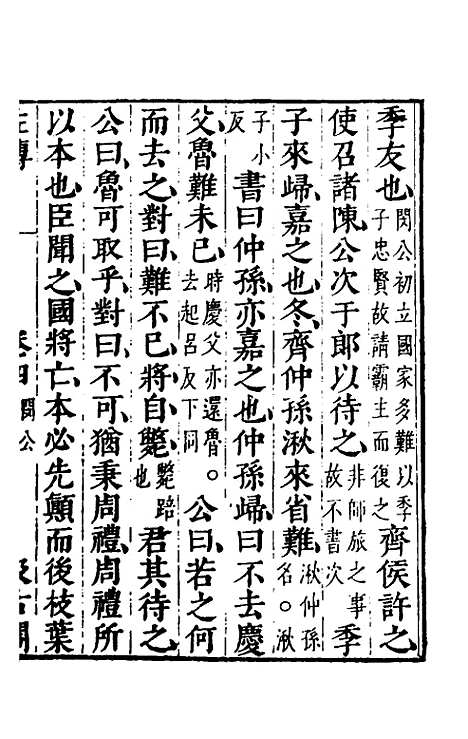 季友也閔公初立國家多難以季子忠賢故請霸主而復之齊侯許之
使召諸陳公次于郎以待之非師旅之事故不書次季
子來歸嘉之也冬齊仲孫湫來省難湫仲孫名○湫
子小反書曰仲孫亦嘉之也仲孫歸曰不去慶
父魯難未已時慶父亦還魯○去起呂反下同公曰若之何
而去之對曰難不已將自斃斃踣也君其待之
公曰魯可取乎對曰不可猶秉周禮周禮所
以本也臣聞之國將亡本必先顛而後枝葉
左傳 卷四閔公